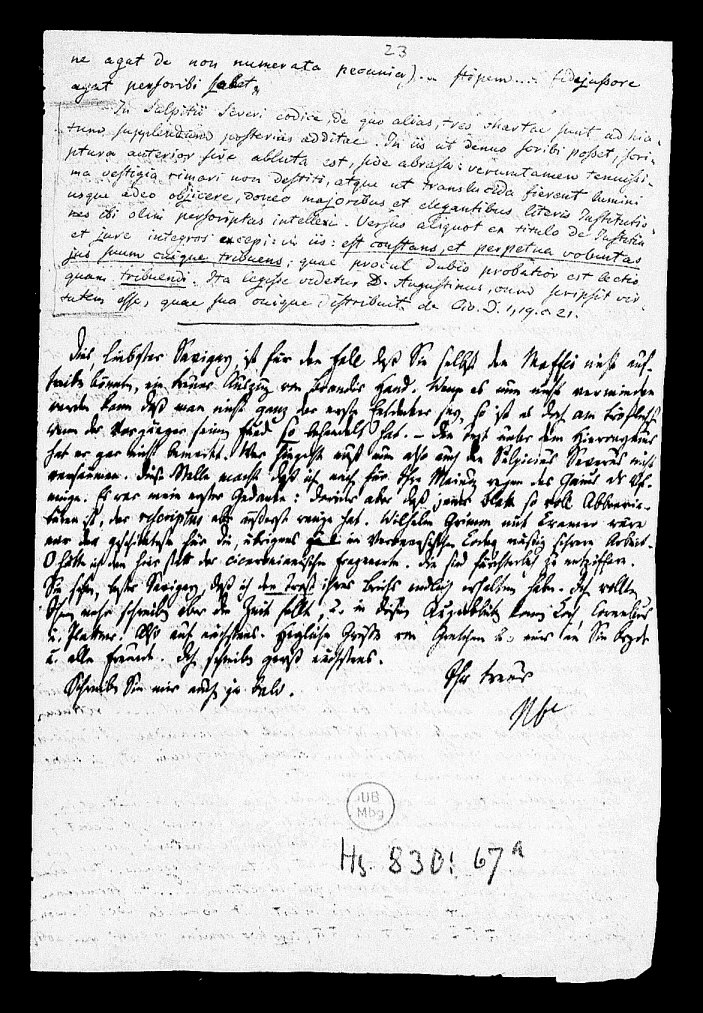 23
ne agat de non numerata pecunia) .. stipem ... fidejussore
agat perscribi solet,
In Sulpitii Severi codice, de quo alias, tres chartae sunt ad hia-
tum supplendum posterius additae. In iis ut denuo scribi posset, scri-
ptura anterior sive abluta est, sive abrasa: veruntamen tenuissi-
ma vestigia rimari non destiti, atque ut translucida fierent lumini
usque adeo objicere, donec majoribus et elegantibus literis Institutio-
nes ibi olim perscriptas intellexi. Versus aliquot ex titulo de Justitia
et jure integros excepi: viz iis: est constans, et perpetua voluntas
jus suum cuique tribuens; quae procul dubio probatior est lectio
quam tribuendi. Ita legisse videtur D. Augustinus, cum scripsit vir-
tutem esse, quae sua cuique distribuit de Civ. D. 1, 19. c 21.
Dies, liebster Savigny ist für den Fall daß Sie selbst den Maffei nicht auf-
treiben können, ein treuer Auszug von Brandis Hand. Wenn es nun nicht vermieden
werden kann daß man nicht ganz der erste Entdecker sey, so ist es doch am tröstlichsten
wenn der Vorgänger seinen Fund so behandelt hat. – Den Text unter dem Hieronymus
hat er gar nicht bemerkt. Wer hingeht muß nun also auch den Sulpicius Severus nicht
versäumen. Diese Stelle macht daß ich auch für Ihre Meinung wegen des Gaius
Es war mein erster Gedanke: darwider aber daß jenes Blatt so voll Abbrevia-
turen ist, der rescriptus aber äußerst wenige hat. Wilhelm Grimm und Cramer wäre
wer der geschickteste für die, übrigens in Vergleichung mit mäßig schwere Arbeit.
O hätte ich den hier statt der ciceronianischen Fragmente. die sind fürchterlich zu entziffern.
Sie sehen, bester Savigny daß ich den Trost ihres Briefs endlich erhalten habe. Ich wollte
Ihnen mehr schreiben aber die Zeit fehlt u. in diesem Augenblick kommen Cornelius
u. Platner. Also auf nächstens. Herzliche Grüße von Gretchen u. mir an Sie beyde
u. alle Freunde. Ich schreibe gewiß nächstens.
Schreiben Sie mir auch ja bald. Ihr treuer
Nbr
UB
Mbg
Hs 830: 67a